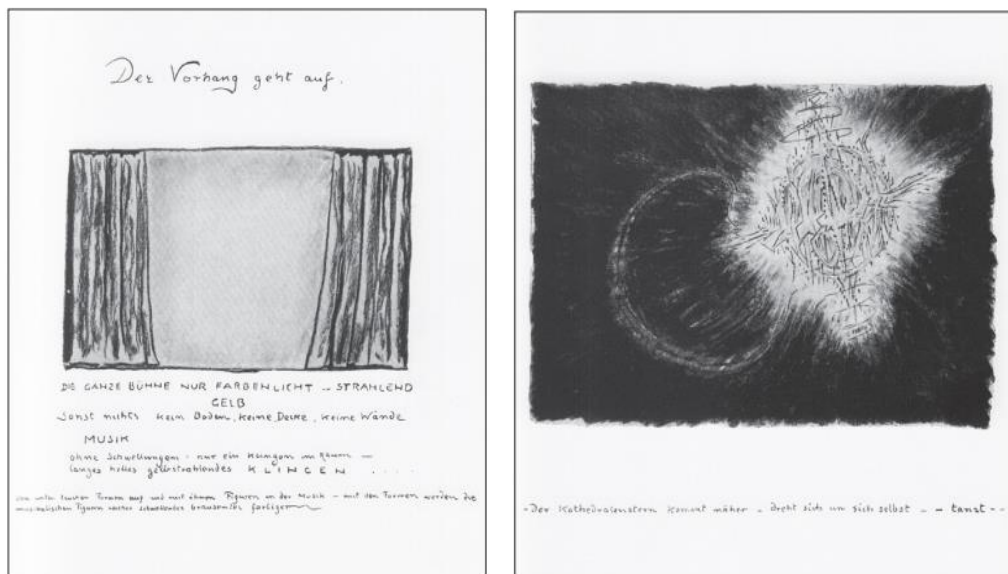 Der Vorhang geht auf.
DIE GANZE BÜHNE NUR FARBENLICHT – STRAHLEND
GELB
Sonst nichts kein Boden, keine Decke, keine Wände
MUSIK
ohne Schwellungen - nur ein klingen im Raum —
langes helles gelbstrahlendes KLINGEN ....
von unten Formen auf und mit ihnen Figuren in der Musik – mit den Formen werden die
musikalischen Figuren farbiger
- Der Kathedralenstern kommt näher – dreht sich um sich selbst – – tanzt - -